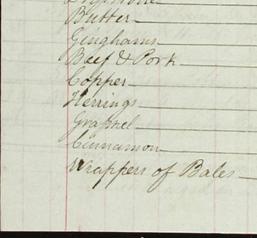 Butter
Ginghams
Beef & Pork
Copper
Herrings
Grapnel
Cinnamon
Wrappers of Bales